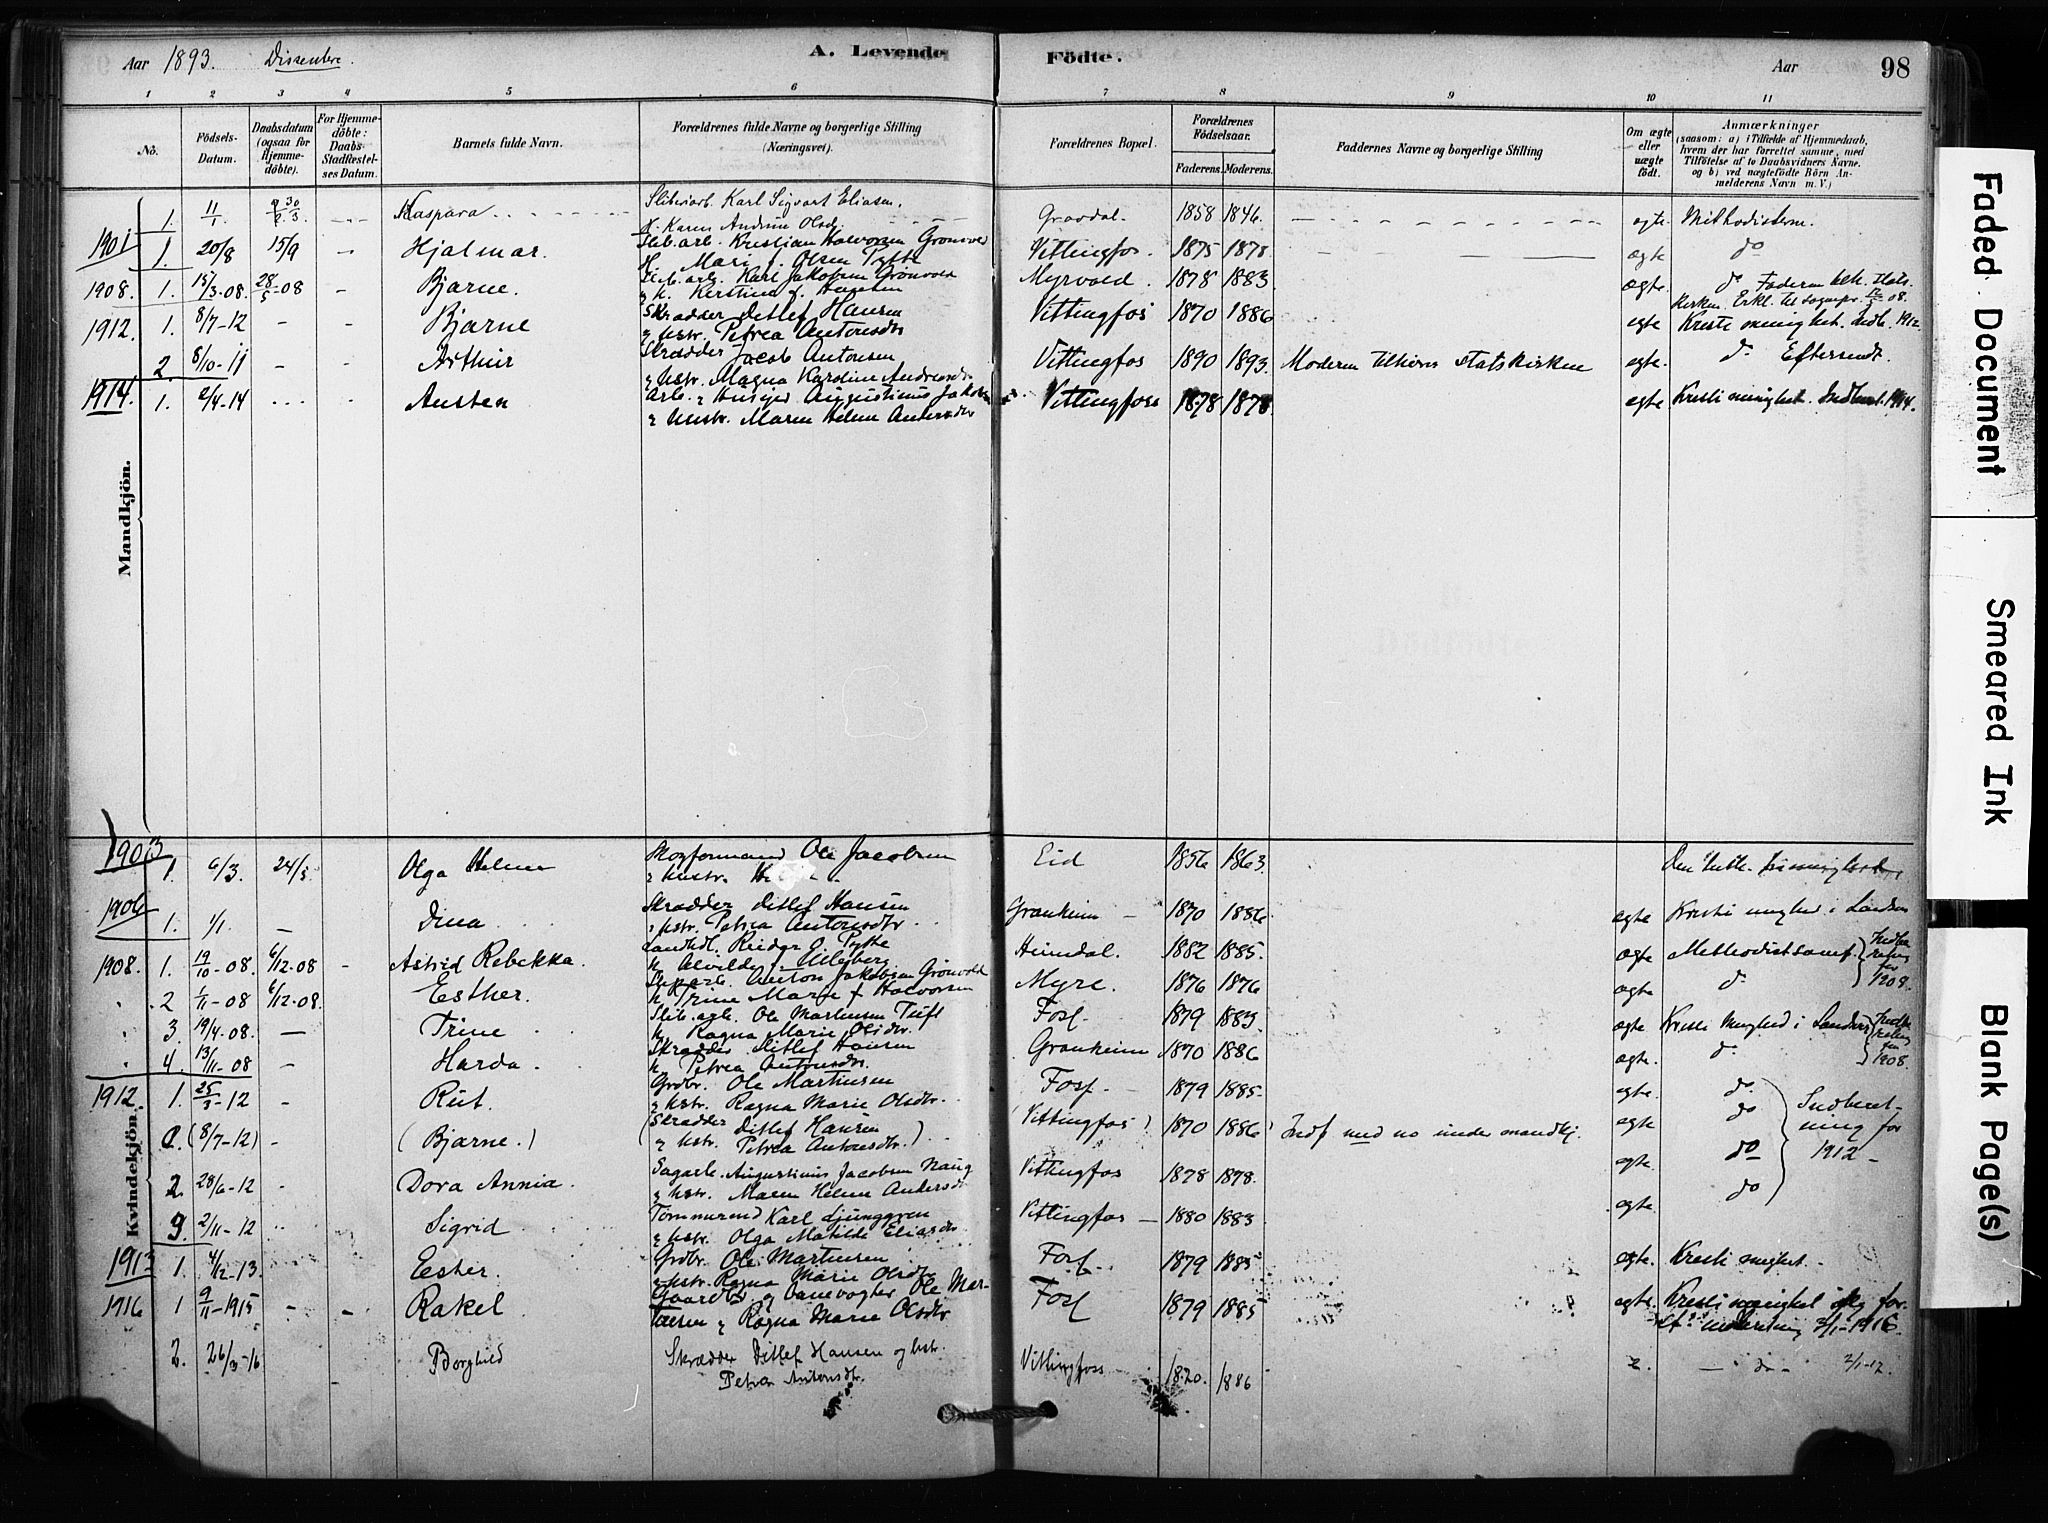 Aar 1893. Dissentere. A. Levende Födte. Aar 98
1 2 3 4 5 6 7 8 9 10 11
No. Födsels-Datum. Daabsdatum (ogsaa for Hjemme-döbte). For Hjemme-döbte: Daabs-Stadfæstelses Datum. Barnets fulde Navn. Forældrenes fulde Navne og borgerlige Stilling (Næringsvei). Forældrenes Bopæl. Forældrenes Födselsaar. Faderens. Moderens. Faddernes Navne og borgerlige Stilling Om ægte eller uægte födt. Anmærkninger (saasom: a) i Tilfælde af Hjemmedaab, hvem der har forrettet samme, med Tilföielse af to Daabsvidners Navne. og b) ved uægtefödte Börn Anmelderens Navn m. V.)
Mandkjön.
1. 11/1 Kaspara Sliberiarb. Karl Sigvart Eliasen, Gravdal. 1858 1846. ægte Methodisterne.
K. Karen Andrine Olsdr
1901 1. 20/8 15/9 - Hjalmar. Slib.arb. Kristian Halvorsen Grönvold Vittingfos. 1875 1878 ægte do
H. Mari f. Olsen Pytte
1908. 1. 15/3-08. 28/5-08 - Bjarne. Slib.arb. Karl Jakobsen Grönvold Myrvold. 1878 1883. ægte. do Faderen bek. Stats-
& H. Kerstina f. Hansen kirken. Erkl. til sognepr. 08.
1912. 1. 8/7-12 - - Bjarne Skrædder Ditlef Hansen Vittingfos 1870 1886 ægte Kristi menighet. Indb. 1912
& hustr. Petrea Antonsdtr
2. 8/10-11 - - Arthur Skrædder Jacob Antonsen Vittingfos 1890 1893. Moderen tilhører Statskirken ægte. do Eftersendt.
& hstr. Magna Karoline Andreasdr
1914. 1. 2/4-14 Austen Arb. & Husejer Augustinus Jakobsen Vittingfoss 1878 1878 ægte Kristi menighet. Indber. 1914.
& hustr. Maren Helene Andersdtr
Kvindekjön.
1903 1. 6/3. 24/5. Olga Helene Ole Jacobsen Eid 1856 1863. Den luth. frimenighed
& hustr.
1906 1. 1/1. - Dina Skrædder Ditlef Hansen Granheim - 1870 1886 ægte Kristi mnghed i Sandsv
& hstr. Petrea Antonsdtr.
1908. 1. 19/10-08. 6/12-08 - Astrid Rebekka. Landhdl. Reidar O. Pytte Heimdal. 1882 1885. ægte Methodistsamf. Indbe
H. Alvilde f. Ulleberg retning
2 1/11-08 6/12-08. Esther. Slib.arb. Anton Jakobsen Grönvold Myre. 1876 1876 ægte do for
H. Trine Marie f. Halvorsen 1908.
3. 19/4-08. - Trine Slib.arb. Ole Martinsen Tuft Foss. 1879 1883. ægte Kristi Mnghed i Sandsv Indbe
H. Ragna Marie Olsdtr. retning
4. 13/11-08 - Harda. Skrædder Ditlef Hansen Granheim 1870 1886 ægte. do for
H. Petrea Antonsdtr. 1908.
1912. 1. 25/3-12 - Rut. Grdbr. Ole Martinsen Foss. 1879 1885. ægte. do
& hstr. Ragna Marie Olsdtr.
(8/7-12) - (Bjarne.) (Skrædder Ditlef Hansen (Vittingfos) 1870 1886) Indf med no under mandkj. ægte do Indberet-
& hstr. Petrea Antonsdtr.) ning for
2. 28/6-12 - Dora Annia. Sagarb. Augustinus Jacobsen Haug Vittingfos 1878 1878. ægte. do 1912 -
& hstr. Maren Helene Andersdtr
3. 2/11-12 Sigrid Tömmermd Karl Ljunggren Vittingfos - 1880 1883 ægte. do
& hstr. Olga Matilde Eliasdtr
1913 1. 4/12-13. Ester. Grdbr. Ole Martinsen Foss. 1879 1885 ægte. Kristi meghet. -
& hstr. Ragna Marie Olsdtr
1916 1 9/11-1915 - - Rakel Gaardbr. og banevogter Ole Mar- Foss 1879 1885 ægte. Kristi menighet ifølg for-
tinsen & Ragna Marie Olsdtr 2/1-1916.
2. 26/3-16 Borghild Skrædder Ditlef Hansen og hstr. Vittingfoss 1870. 1886 - do -
Petra Antonsdtr.
Faded Document
Smeared Ink
Blank Page(s)